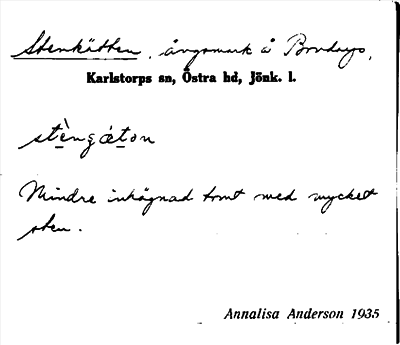 Stenkätten, ängsmark å Brudaryo,
Karlstorps sn, Östra hd, Jönk. l.
stèngǽton
Mindre inhägnad tomt med mycket
sten.
Annalisa Anderson 1935